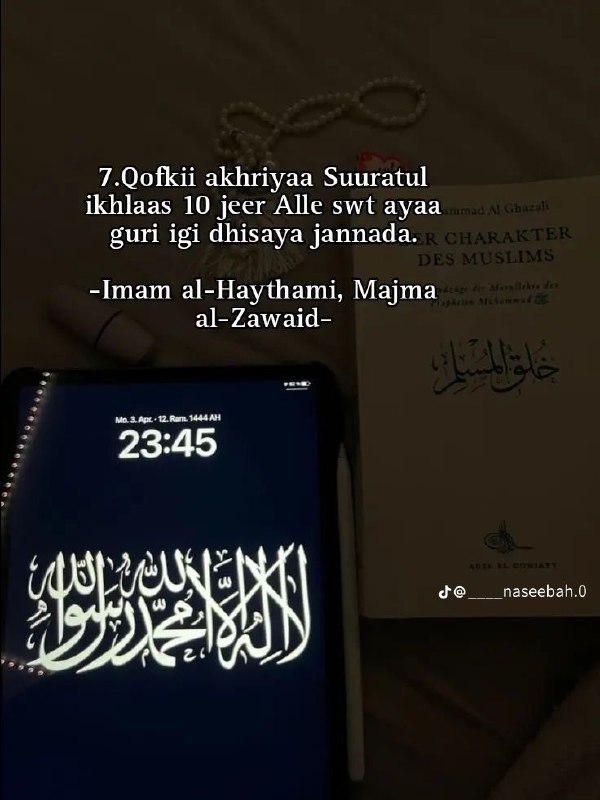 7.Qofkii akhriyaa Suuratul
ikhlaas 10 jeer Alle swt ayaa
guri igi dhisaya jannada.
-Imam al-Haythami, Majma
al-Zawaid-
Muhammad Al Ghazali
DER CHARAKTER
DES MUSLIMS
des Propheten Muhammad ﷺ
خلق المسلم
Mo. 3. Apr. · 12. Ram. 1444 AH
23:45
لا إله إلا الله محمد رسول الله
@____naseebah.0